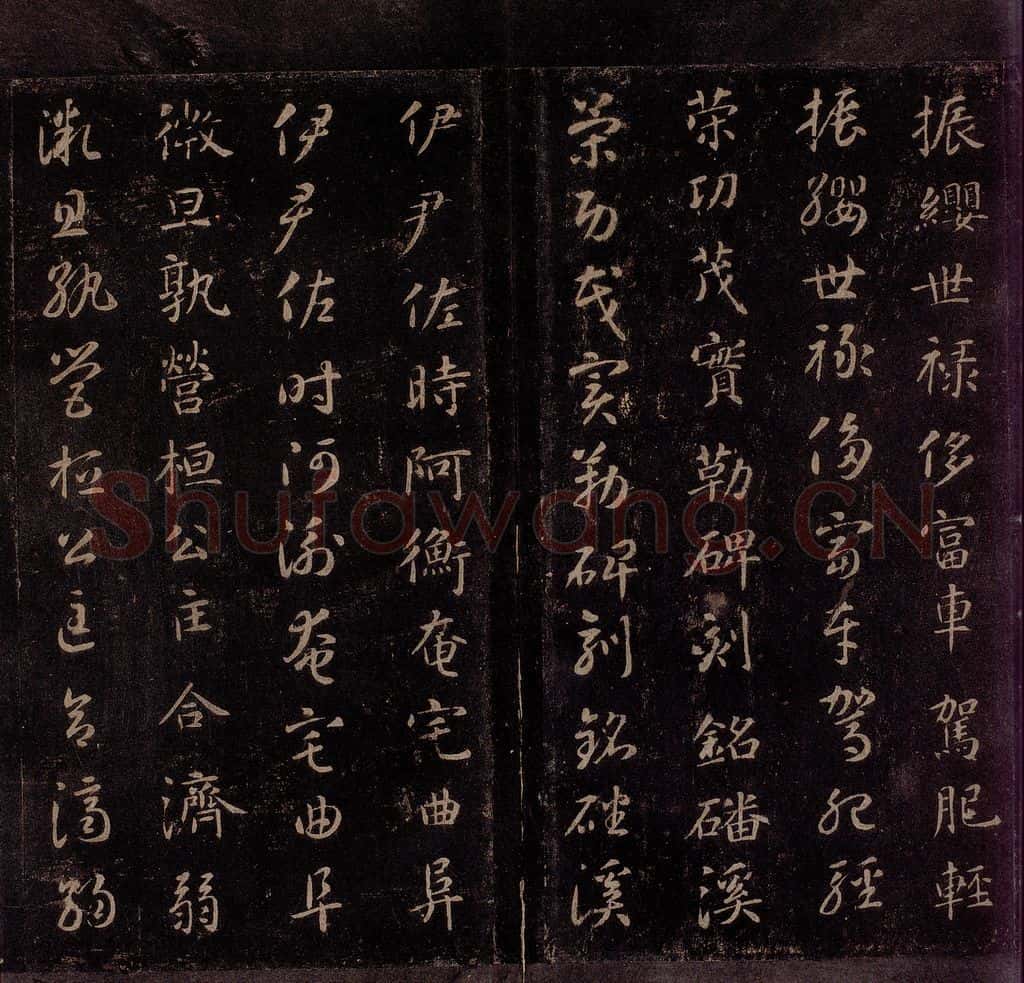 振纓世禄侈富車駕肥輕
振纓世禄侈富車駕肥輕
策功茂實勒碑刻銘磻溪
策功茂實勒碑刻銘磻溪
伊尹佐時阿衡奄宅曲阜
伊尹佐時阿衡奄宅曲阜
微旦孰營桓公匡合濟弱
微旦孰營桓公匡合濟弱
Shufawang.CN